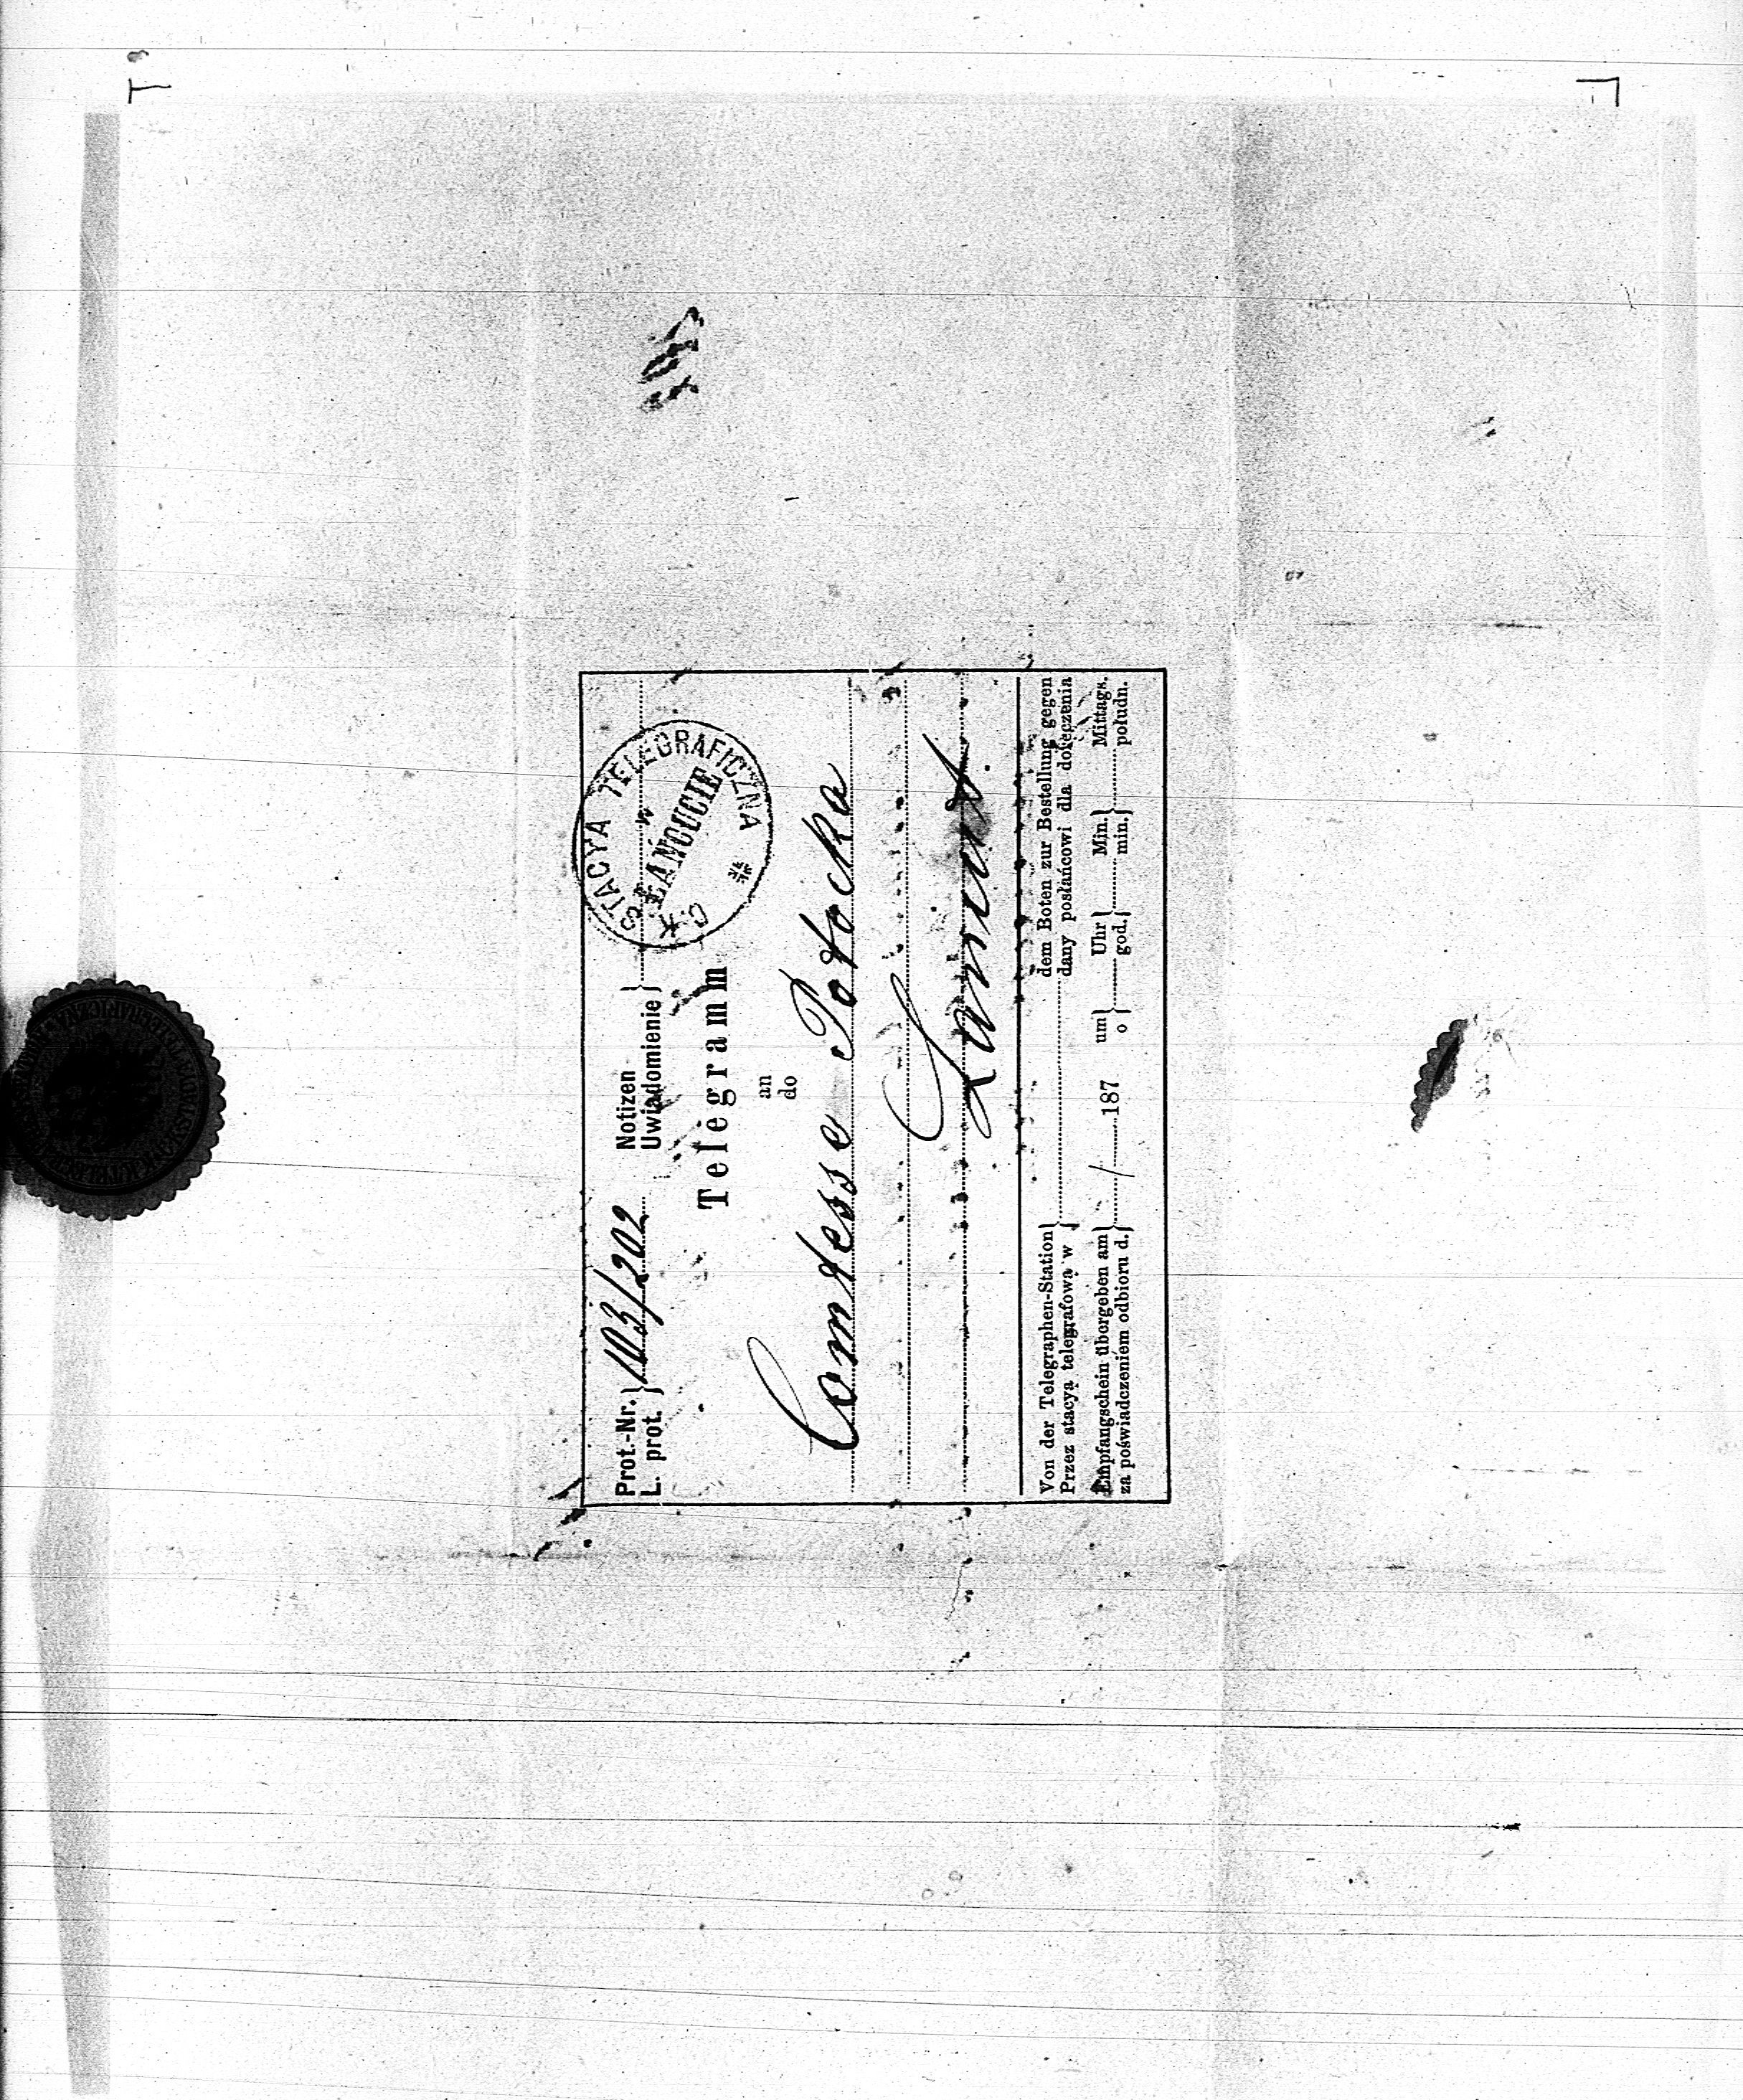 Prot.-Nr. } 103/202 Notizen }
L. prot. } Uwiadomienie }
C. K. STACYA TELEGRAFICZNA
w
ŁAŃCUCIE
Telegramm
an
do
Comtesse Potocka
Lancut.
Von der Telegraphen-Station } dem Boten zur Bestellung gegen
Przez stacyą telegrafową w } dany posłańcowi dla doręczenia
Empfangschein übergeben am } / 187 um } Uhr } Min. } Mittags.
za poświadczeniem odbioru d. } o } god. } min. } połudn.